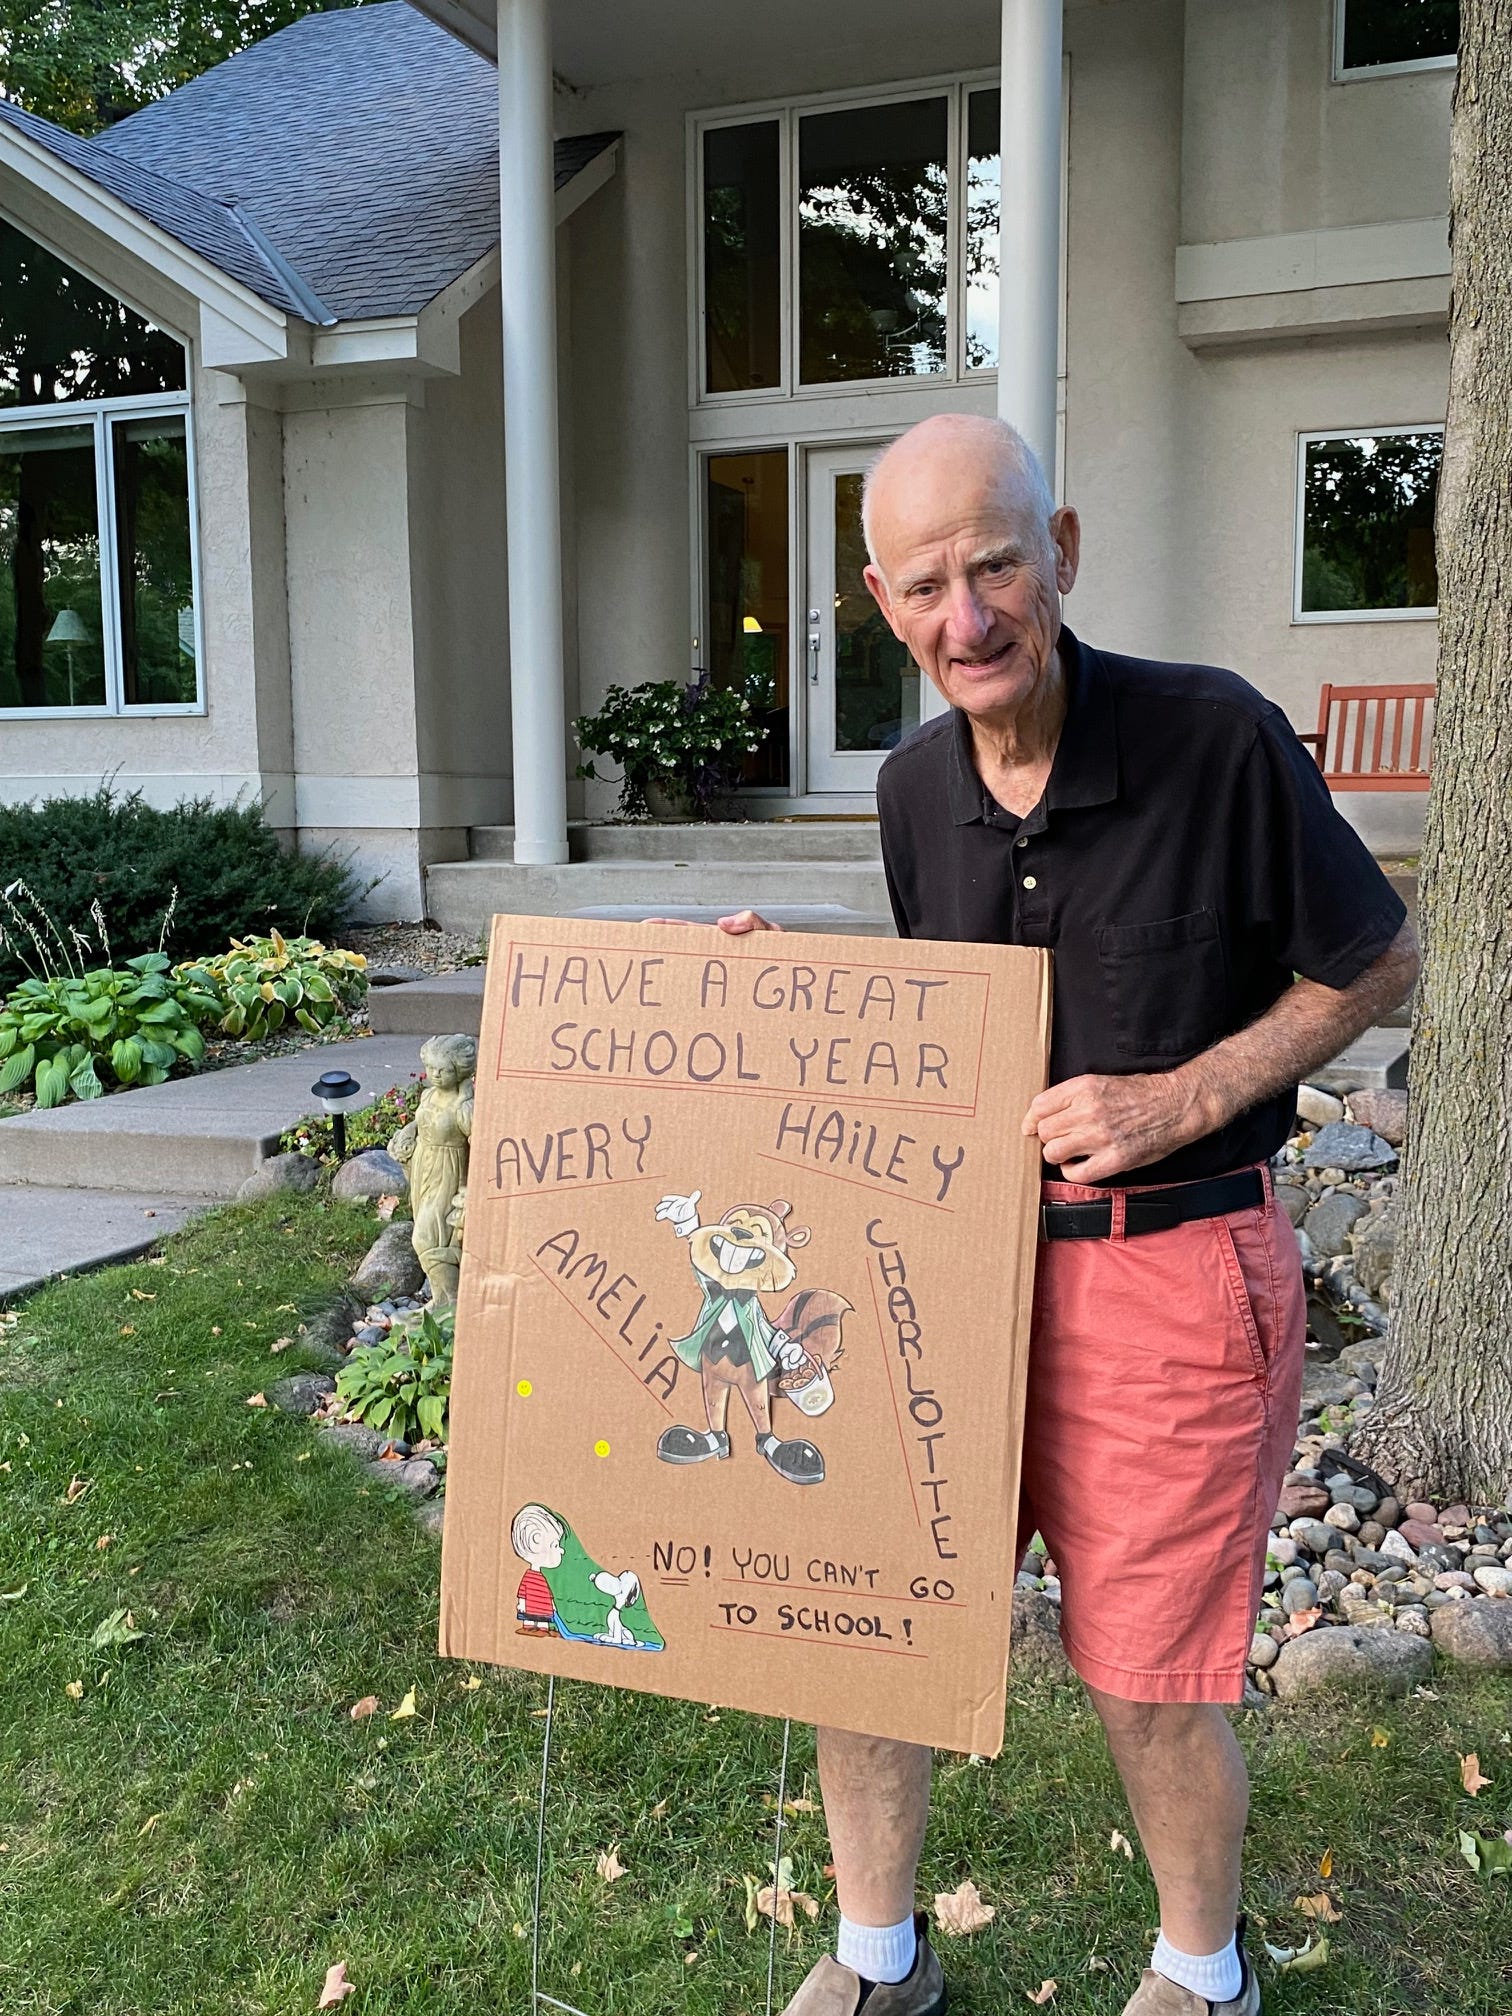 HAVE A GREAT
SCHOOL YEAR
AVERY
HAiLEY
AMELiA
CHARLOTTE
NO! YOU CAN'T GO
TO SCHOOL!